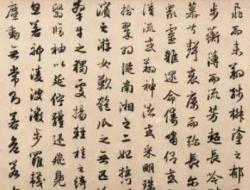 飛而未翔踐椒塗之郁
步蘅薄而流芳超長吟
慕兮聲哀厲而彌長爾
眾靈雜遝命儔嘯侶或
流或翔神渚或采明珠
拾翠羽從南湘之二妃攜
濱之游女歎匏瓜之無匹
牽牛之獨處揚輕袿之
翳脩袖以延佇體迅飛鳧
忽若神凌波微步羅襪
塵動無常則若危若